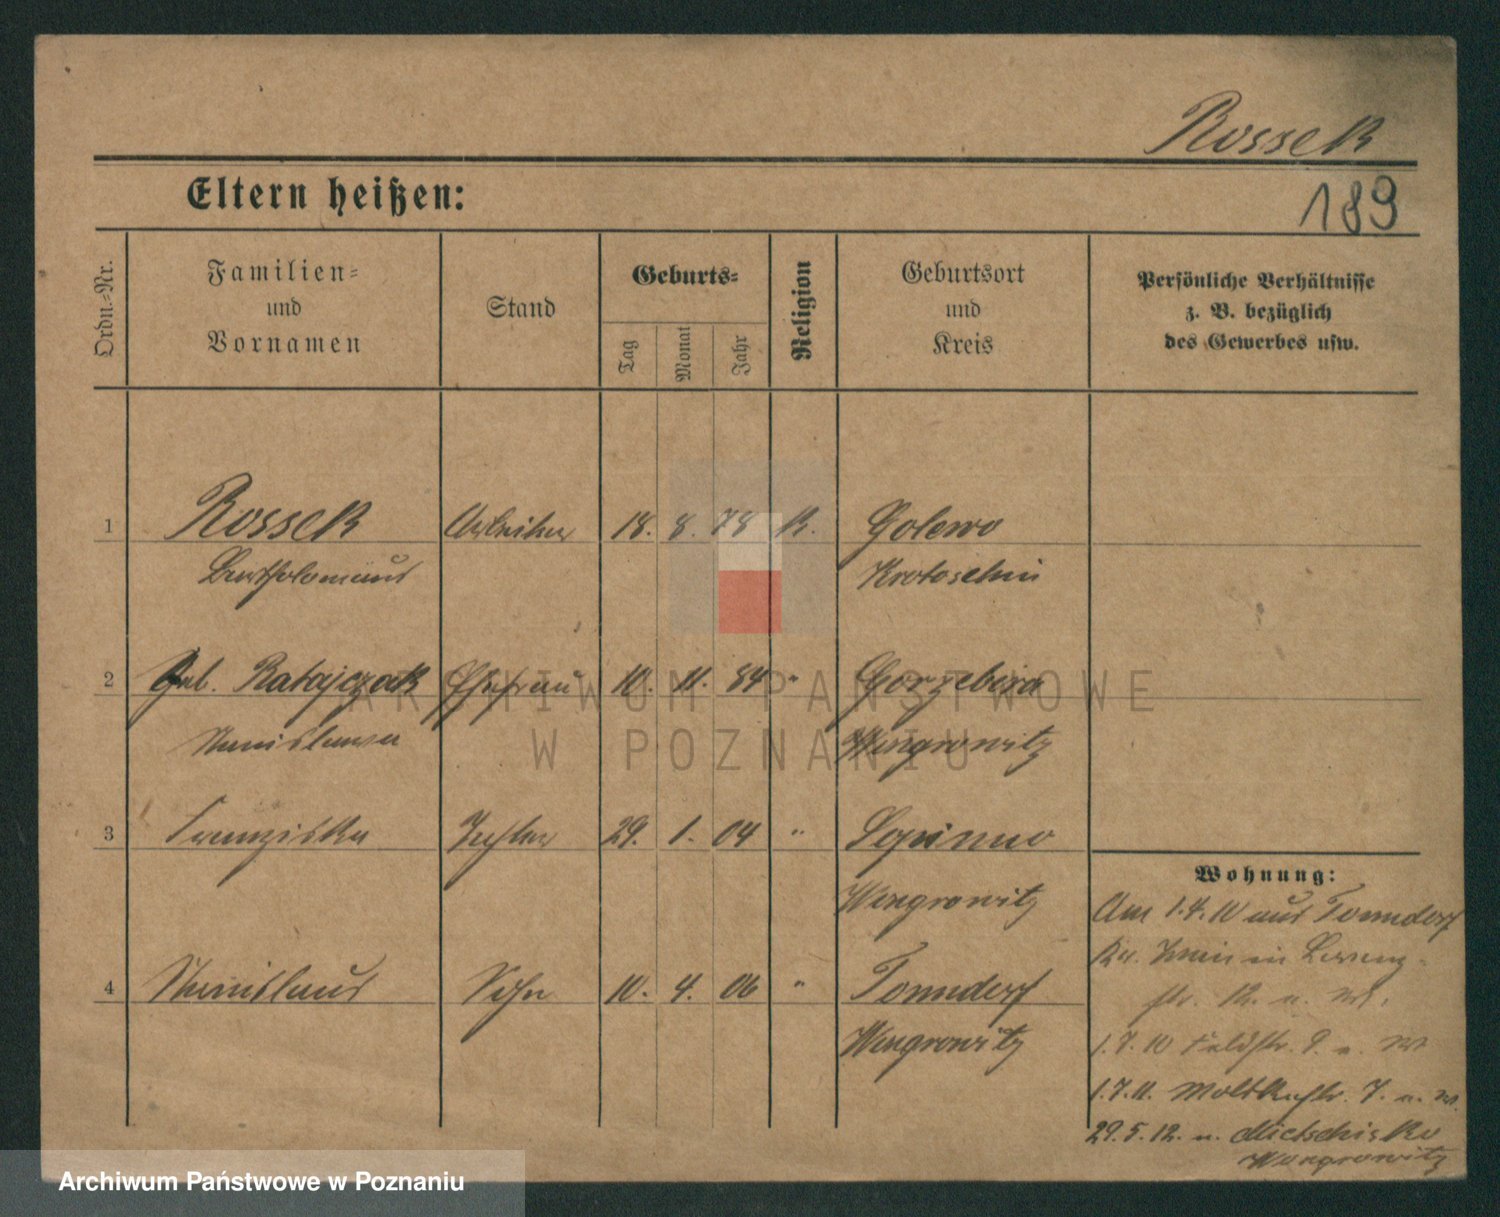 Rossek
Eltern heißen:
189
Ordn.-Nr.
Familien-
und
Vornamen
Stand
Geburts-
Tag
Monat
Jahr
Religion
Geburtsort
und
Kreis
Persönliche Verhältnisse
z. B. bezüglich
des Gewerbes usw.
1 Rossek Arbeiter 18. 8. 78 K. Golewo
Bartholomäus Krotoschin
2 Geb. Ratajczak Ehefrau 10. 11. 84 " Gorzebira
Stanislawa Wongrowitz
3 Franziska Tochter 29. 1. 04 "
Wongrowitz
4 Stanislaus Sohn 10. 4. 06 " Tonndorf
Wongrowitz
Wohnung:
Am 1.4.10 aus Tonndorf
Kr. in Lorenz-
str. 12. n.
1.7.10 Feldstr. 9. n.
1.7.11. Moltkestr. 7. n.
29.5.12. n. Mietschisko
Wongrowitz
ARCHIWUM PAŃSTWOWE
W POZNANIU
Archiwum Państwowe w Poznaniu